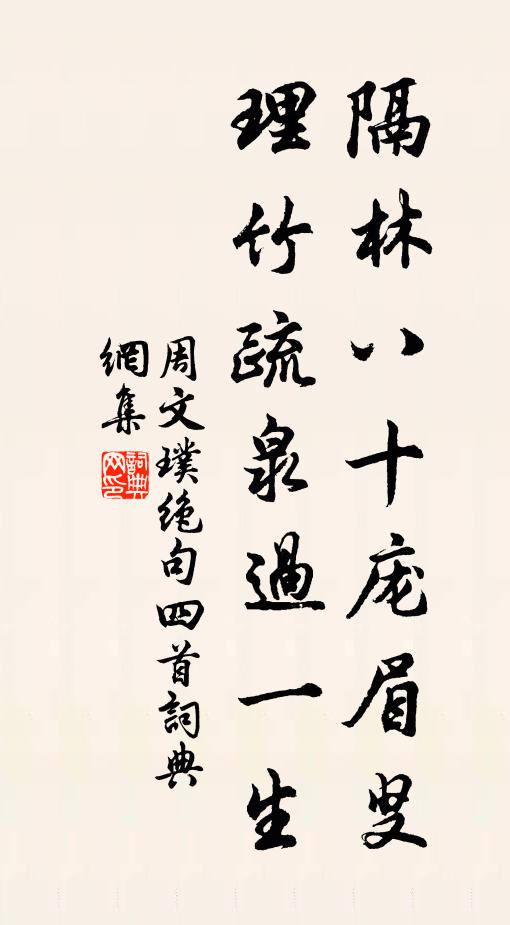 隔林八十庞眉叟
理竹疏泉過一生
周文璞绝句四首詞典
網集
詞典网印